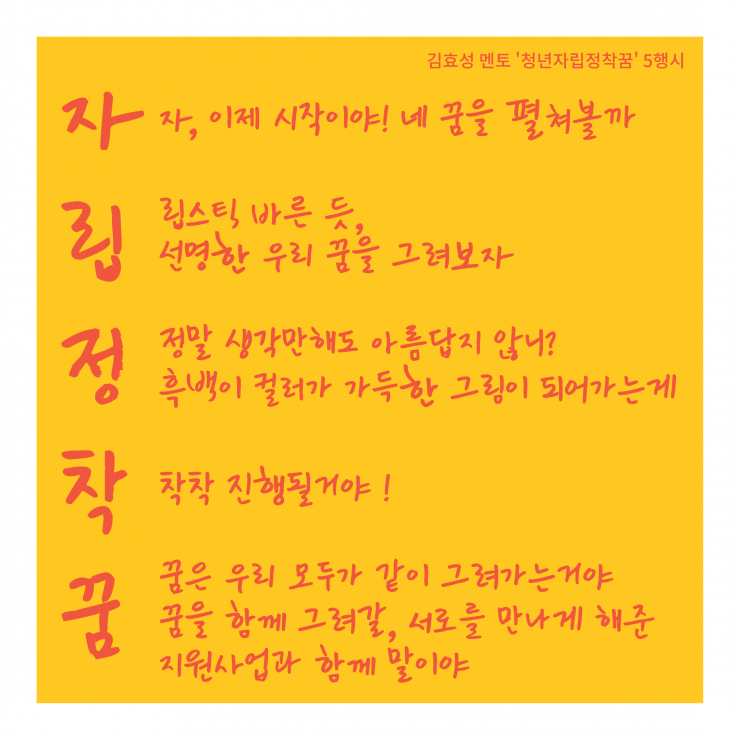 김효성 멘토 '청년자립정착꿈' 5행시
자
자, 이제 시작이야! 네 꿈을 펼쳐볼까
립
립스틱 바른 듯,
선명한 우리 꿈을 그려보자
정
정말 생각만해도 아름답지 않니?
흑백이 컬러가 가득한 그림이 되어가는게
착
착착 진행될거야 !
꿈
꿈은 우리 모두가 같이 그려가는거야
꿈을 함께 그려갈, 서로를 만나게 해준
지원사업과 함께 말이야